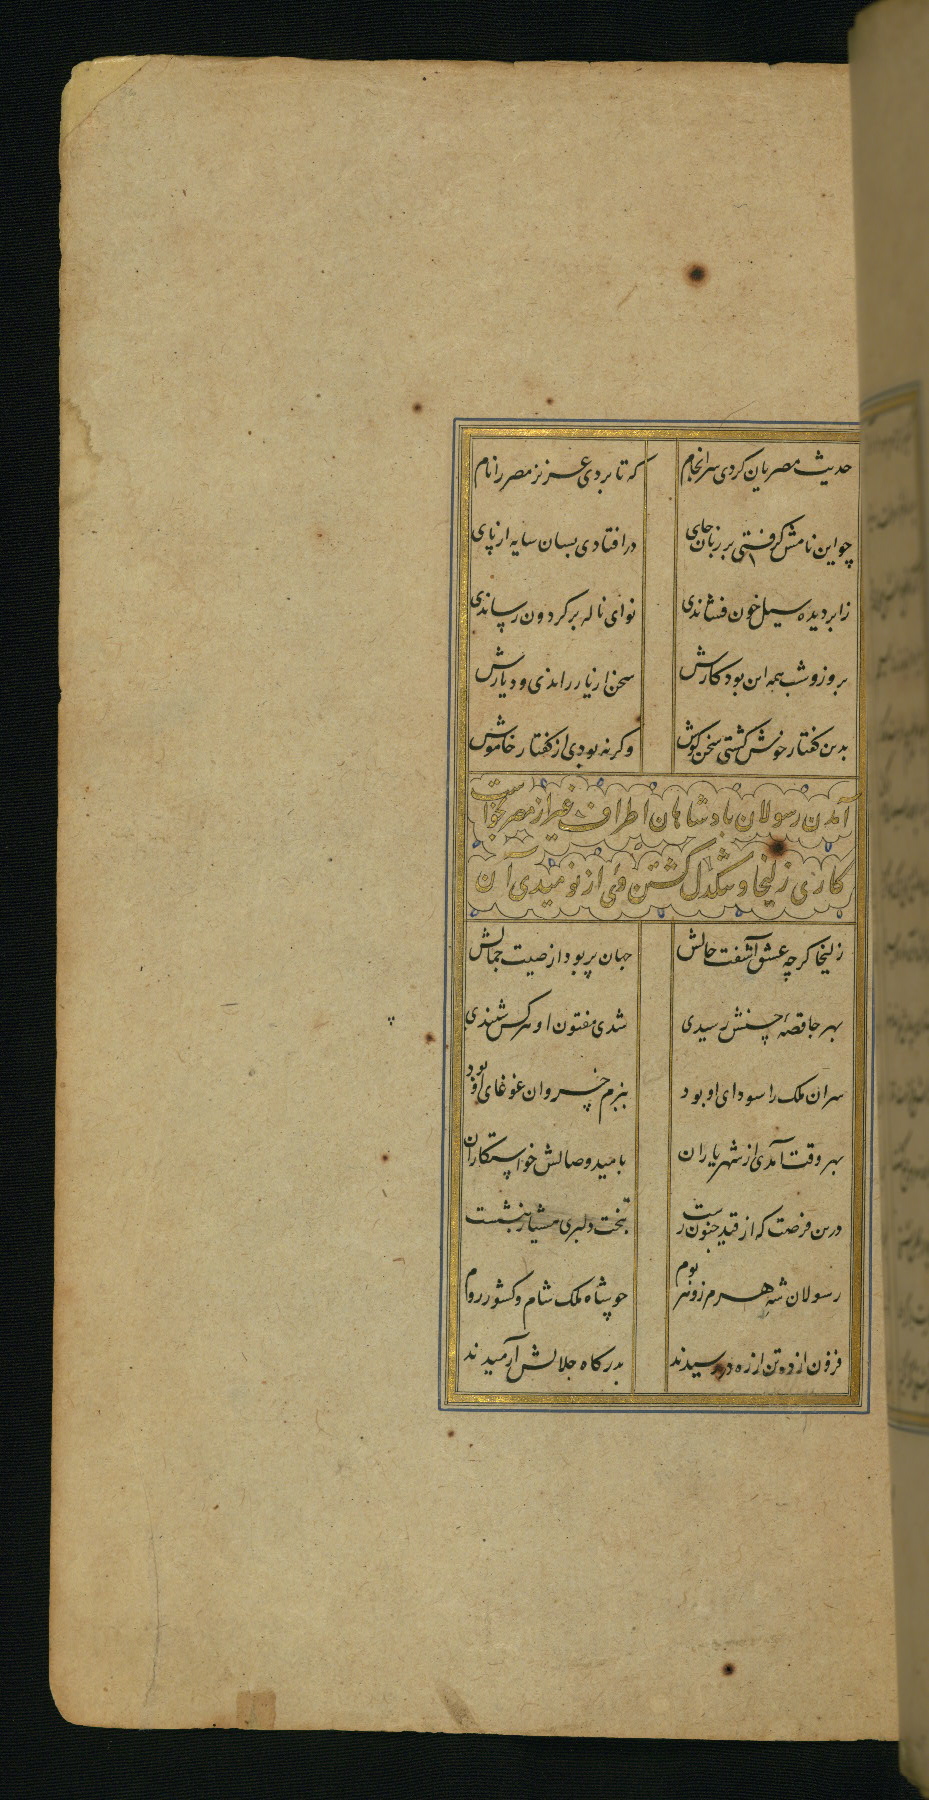 حدیث مصریان کردی سرانجام که تا بردی عزیز مصر را نام
چو این نامش گرفتی بر زبان جای در افتادی بسان سایه از پای
ز ابر دیده سیل خون فشاندی نوای ناله بر کردون رساندی
بروز و شب همه این بود کارش سخن از یار راندی و دیارش
بدین کفتار خوش کشتی سخن کوش وکرنه بودی از کفتار خاموش
آمدن رسولان بادشاهان اطراف غیر از مصر بخواست
کاری زلیخا و تنکدل کشتن وی از نومیدی آن
زلیخا کرچه عشق آشفت حالش جهان پر بود از صیت جمالش
بهر جا قصهٔ حسنش رسیدی شدی مفتون او هر کس شنیدی
سران ملک را سودای او بود ببزم خسروان غوغای او بود
بهر وقت آمدی از شهریاران بامید وصالش خواستکاران
درین فرصت که از قید جنون رست بتخت دلبری هشیار بنشست
رسولان شه هر مرز و هر بوم چو شاه ملک شام و کشور روم
فزون از ده تن از ره در رسیدند بدرکاه جلالش آرمیدند